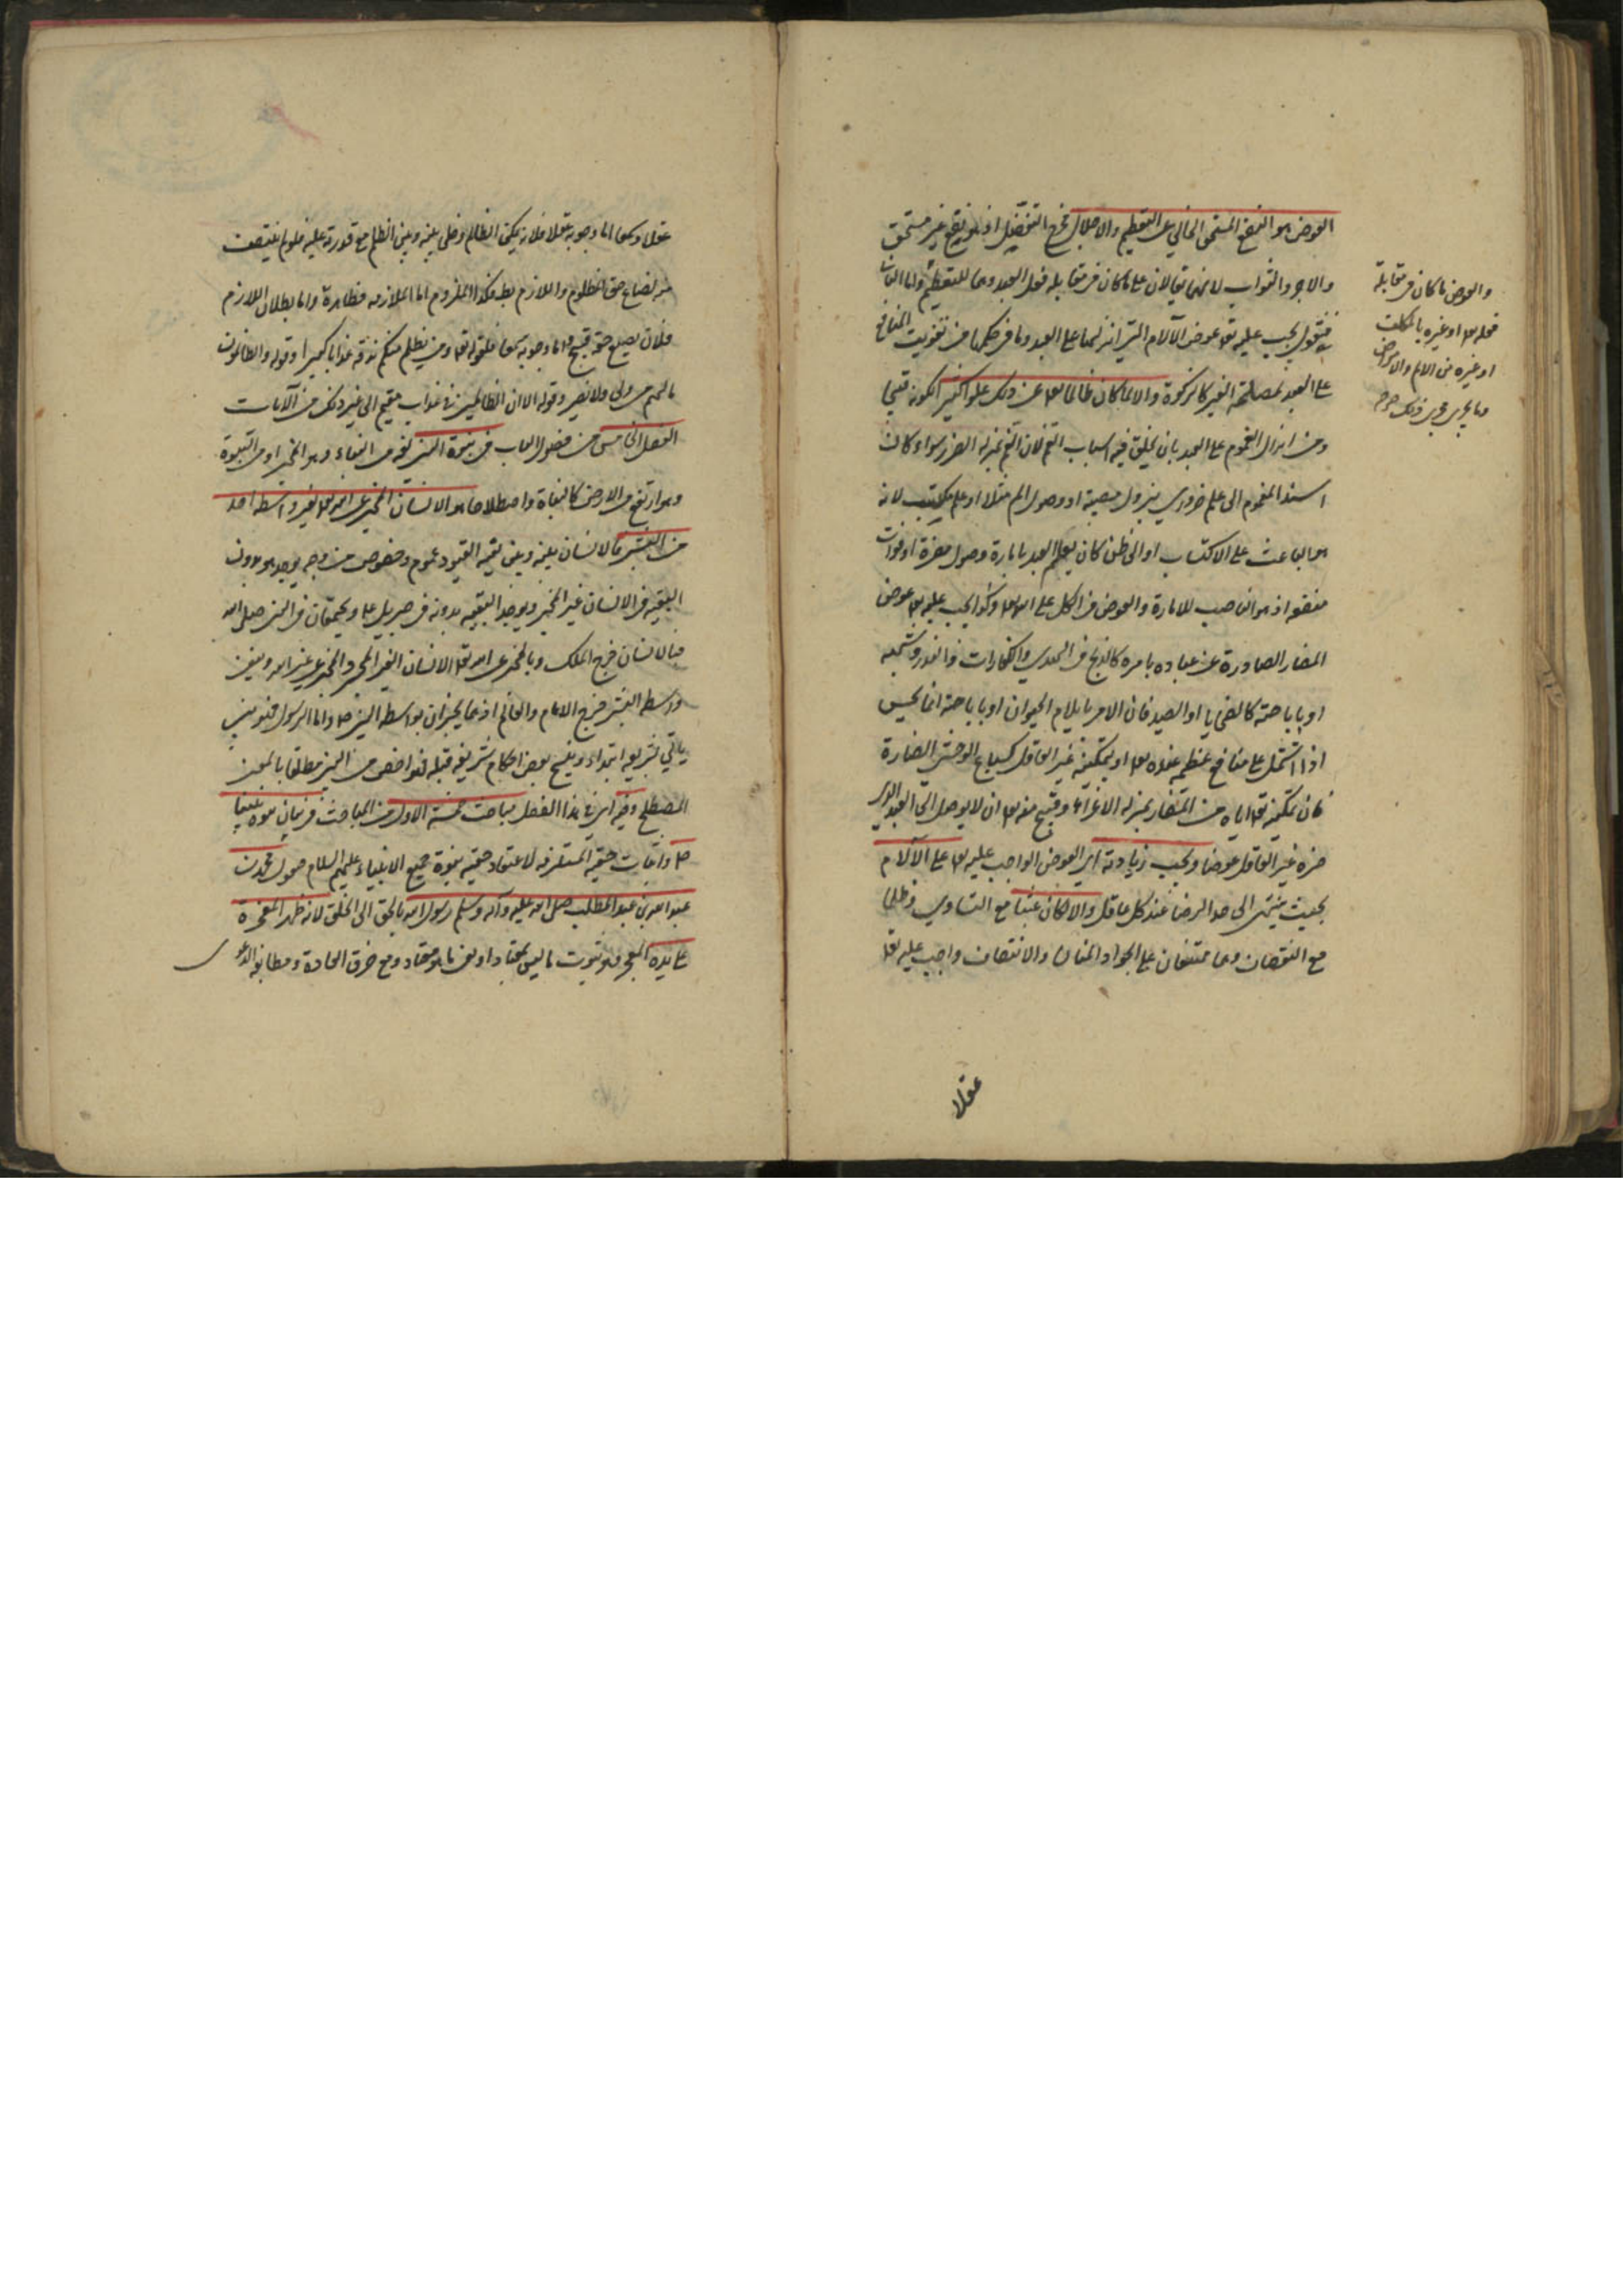 العوض هو النفع المستحق الخالي عن التعظيم والاجلال فخرج التفضل اذ هو نفع غير مستحق
والاجر والثواب لانهما يقالان على ما كان في مقابلة فعل العبد وهما للتعظيم واما الثاني
فنقول يجب عليه تع عوض الآلام التي انزلها على العبد وما في حكمها من تفويت المنافع
على العبد لمصلحة الغير كالزكوة والا لما كان ظالما تع عن ذلك علوا كبيرا لكونه قبيحا
ومن انزال الغموم على العبد بان يخلق فيه اسباب الغم لان الغم بمنزلة الضرر سواء كان
استند المغموم الى علم ضروري بنزول مصيبة او وصول الم مثلا او علم مكتسب لانه
هو الباعث على الاكتساب او الى ظن كان يعلم العبد بامارة وصول مضرة او فوات
منفعة اذ هو الناصب للامارة والعوض في الكل على الله تع وكذا يجب عليه تع عوض
المضار الصادرة عن عباده بامره كالذبح في الهدي والكفارات والنذر وشبهه
او باباحته كالضحايا او الصيد فان الامر بايلام الحيوان او باباحته انما يحسن
اذا اشتمل على منافع عظيمة عنده تع او بتمكينه غير العاقل كسباع الوحش الضارة
فان تمكينه تع اياه من المضار بمنزلة الاغراء وقبح منه تع ان لا يوصل الى العبد الذي
ضره غير العاقل عوضا ويجب زيادته اي العوض الواجب عليه تع على الآلام
بحيث ينتهى الى حد الرضا عند كل عاقل والا كان عبثا مع التساوي وظلما
مع النقصان وهما ممتنعان على الجواد المنان والانتصاف واجب عليه تع
والعوض ما كان في مقابلة
فعله تع او غيره بالمكلف
او غيره من الالم والامراض
وما يجري مجرى ذلك
عقلا
عقلا وسمعا اما وجوبه عقلا فلانه يمكن الظالم وخلى بينه وبين الظلم مع قدرته عليه فلو لم ينتصف
منه لضاع حق المظلوم واللازم بط فكذا الملزوم اما الملازمة فظاهرة واما بطلان اللازم
فلان تضييع حقه قبيح واما وجوبه سمعا فلقوله تع ومن يظلم منكم نذقه عذابا كبيرا وقوله والظالمون
مالهم من ولي ولا نصير وقوله الا ان الظالمين في عذاب مقيم الى غير ذلك من الآيات
الفصل الخامس من فصول الباب في نبوة النبي لغة من النباء وهو الخبر او من النبوة
وهو ارتفع من الارض كالنباة واصطلاحا هو الانسان المخبر عن الله تع بغير واسطة احد
من البشر فالانسان بينه وبين بقية القيود عموم وخصوص من وجه يوجد هو بدون
البقية في الانسان غير المخبر ويوجد البقية بدونه في جبرئيل ع ويجتمعان في النبي صلى الله
فبالانسان خرج الملك وبالمخبر عن الله تع الانسان الغير المخبر والمخبر عن غير الله وبغير
واسطة البشر خرج الامام والعالم اذ هما يخبران بواسطة النبي ص واما الرسول فهو نبي
ياتي بشريعة ابتداء وينسخ بعض احكام شريعة قبله فهو اخص من النبي مطلقا بالمعنى
المصطلح وفيه اي في هذا الفصل مباحث خمسة الاول من المباحث في بيان نبوة نبينا
ص واثبات حقيته المستلزمة لاعتقاد حقية نبوة جميع الانبياء عليهم السلام محمد بن
عبد الله بن عبد المطلب صلى الله عليه وآله وسلم رسول الله بالحق الى الخلق لانه ظهر المعجزة
على يده المعجز هو ثبوت ما ليس بمعتاد او نفى ما هو معتاد ومع خرق العادة ومطابقة الدعوى